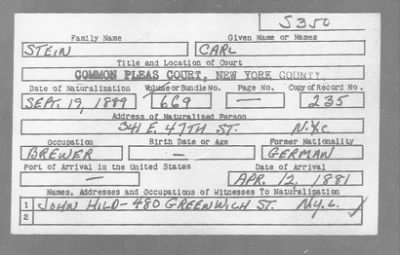 S350
Family Name Given Name or Names
STEIN CARL
Title and Location of Court
COMMON PLEAS COURT, NEW YORK COUNTY
Date of Naturalization Volume or Bundle No. Page No. Copy of Record No.
SEPT. 19, 1889 669 — 235
Address of Naturalized Person
341 E. 47TH ST. N.Y.C.
Occupation Birth Date or Age Former Nationality
BREWER — GERMAN
Port of Arrival in the United States Date of Arrival
— APR. 12, 1881
Names, Addresses and Occupations of Witnesses To Naturalization
1 JOHN HILD - 480 GREENWICH ST. N.Y.C.
2